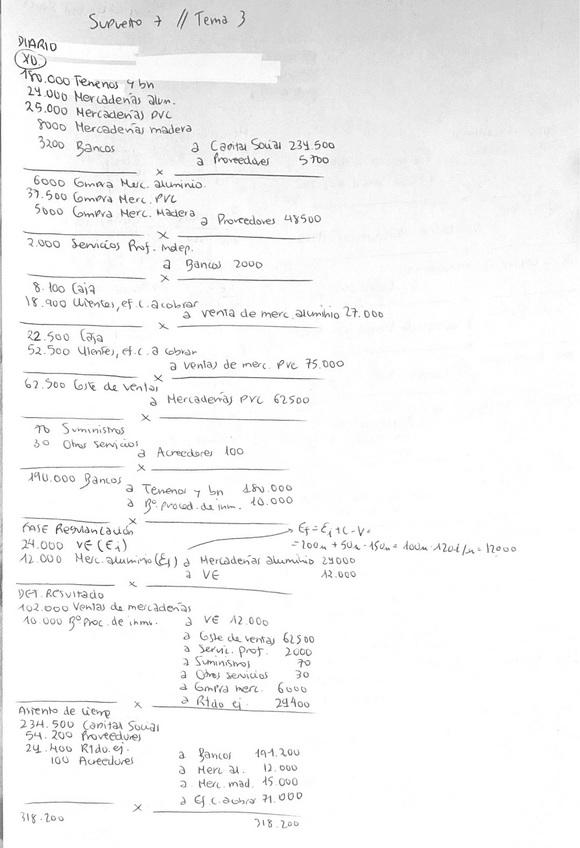 Supuesto 7 // Tema 3
DIARIO
XD
180.000 Terrenos y bn
24.000 Mercaderías alum.
25.000 Mercaderías PVC
8000 Mercaderías madera
3200 Bancos a Capital Social 234.500
a Proveedores 5700
x
6000 Compra Merc. aluminio.
37.500 Compra Merc. PVC
5000 Compra Merc. Madera a Proveedores 48500
x
2.000 Servicios Prof. indep.
a Bancos 2000
x
8.100 Caja
18.900 Clientes, ef. c. a cobrar
a venta de merc. aluminio 27.000
x
22.500 Caja
52.500 Clientes, ef. c. a cobrar
a ventas de merc. PVC 75.000
x
62.500 Coste de ventas
a Mercaderías PVC 62500
x
70 Suministros
30 Otros servicios
a Acreedores 100
x
190.000 Bancos
a Terrenos y bn 180.000
a Bº. proced. de inm. 10.000
x
FASE Regularización
Ef = Ei + C - V =
= 200u + 50u - 150u = 100u · 120€/u = 12000
24.000 VE (Ei)
12.000 Merc. aluminio (Ef) a Mercaderías aluminio 24000
a VE 12.000
x
DET. Resultado
102.000 Ventas de mercaderías
10.000 Bº Proc. de inmv. a VE 12.000
a Coste de ventas 62500
a Servic. prof. 2000
a Suministros 70
a Otros servicios 30
a Compra merc. 6000
a Rtdo ej. 29400
x
Asiento de cierre
234.500 Capital Social
54.200 Proveedores
29.400 Rtdo. ej.
100 Acreedores
a Bancos 191.200
a Merc al. 12.000
a Merc. mad. 15.000
a Ef c. a cobrar 71.000
x
318.200 318.200